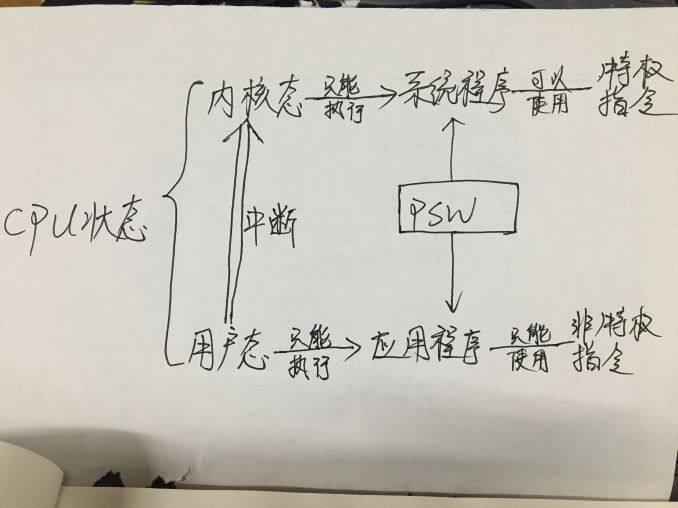 内核态 只能执行 系统程序 可以使用 特权指令
中断
PSW
CPU状态
用户态 只能执行 应用程序 只能使用 非特权指令